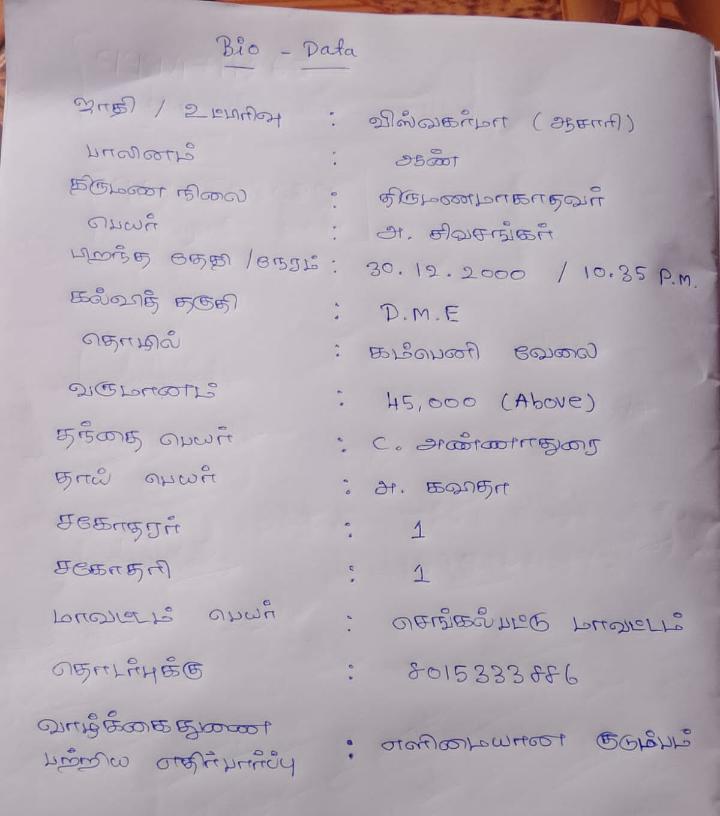 Bio - Data
ஜாதி / உட்பிரிவு : விஸ்வகர்மா (ஆசாரி)
பாலினம் : ஆண்
திருமண நிலை : திருமணமாகாதவர்
பெயர் : அ. சிவசங்கர்
பிறந்த தேதி / நேரம் : 30.12.2000 / 10.35 P.M.
கல்வித் தகுதி : D.M.E
தொழில் : கம்பெனி வேலை
வருமானம் : 45,000 (Above)
தந்தை பெயர் : C. அண்ணாதுரை
தாய் பெயர் : அ. கவிதா
சகோதரர் : 1
சகோதரி : 1
மாவட்டம் பெயர் : செங்கல்பட்டு மாவட்டம்
தொடர்புக்கு : 8015333886
வாழ்க்கைதுணை
பற்றிய எதிர்பார்ப்பு : எளிமையான குடும்பம்